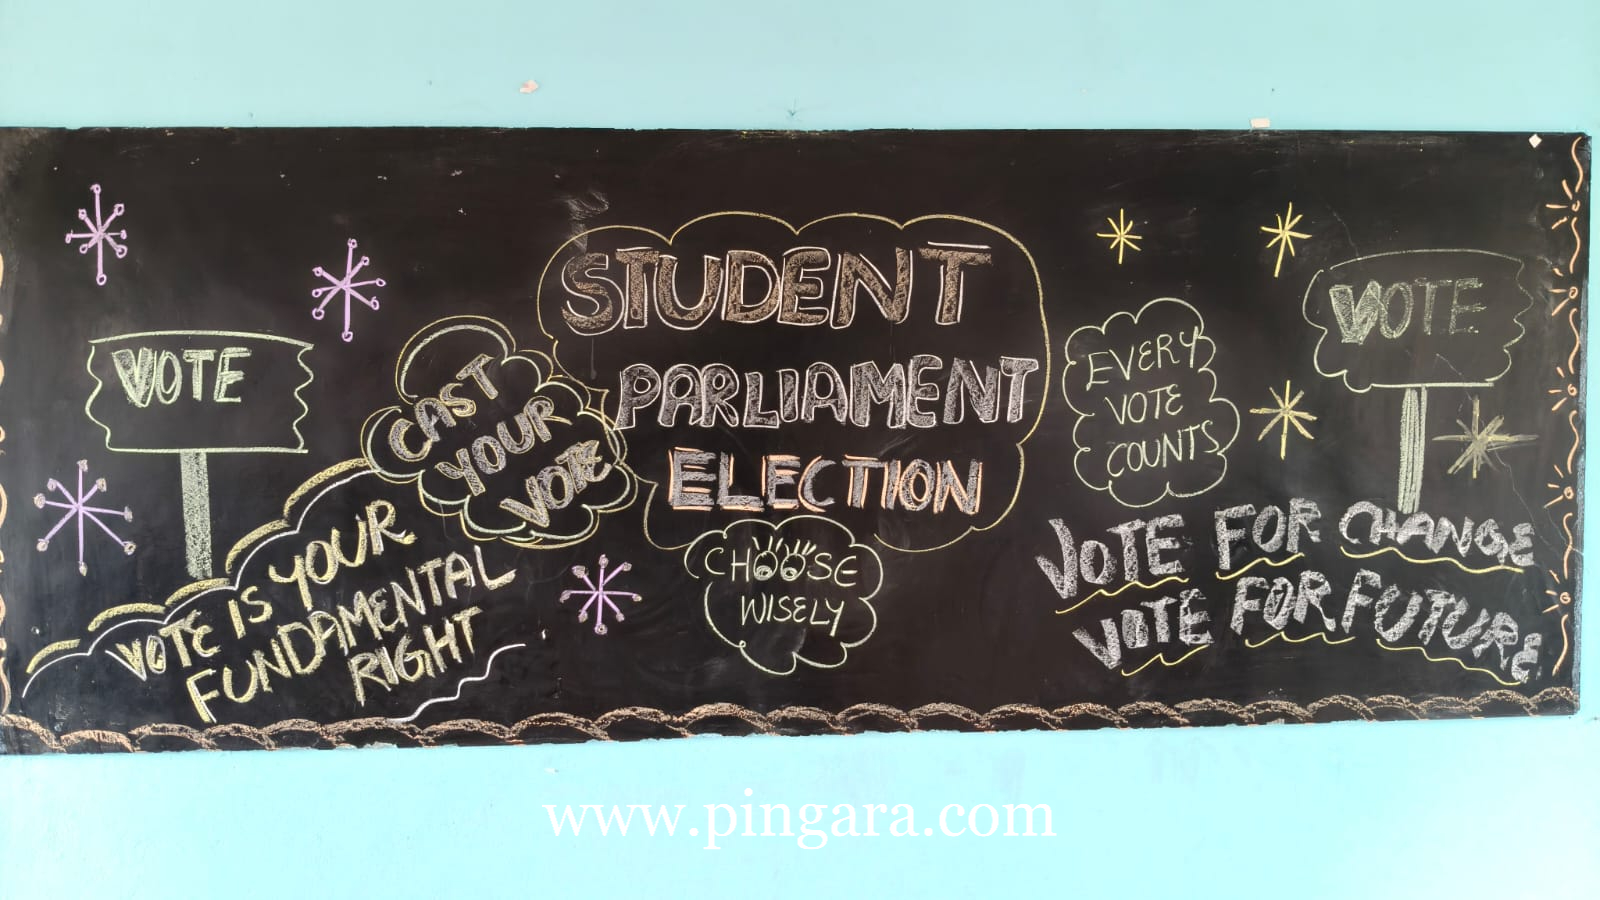 STUDENT
PARLIAMENT
ELECTION
VOTE
CAST
YOUR
VOTE
VOTE IS YOUR
FUNDAMENTAL
RIGHT
CHOOSE
WISELY
EVERY
VOTE
COUNTS
VOTE
VOTE FOR CHANGE
VOTE FOR FUTURE
www.pingara.com